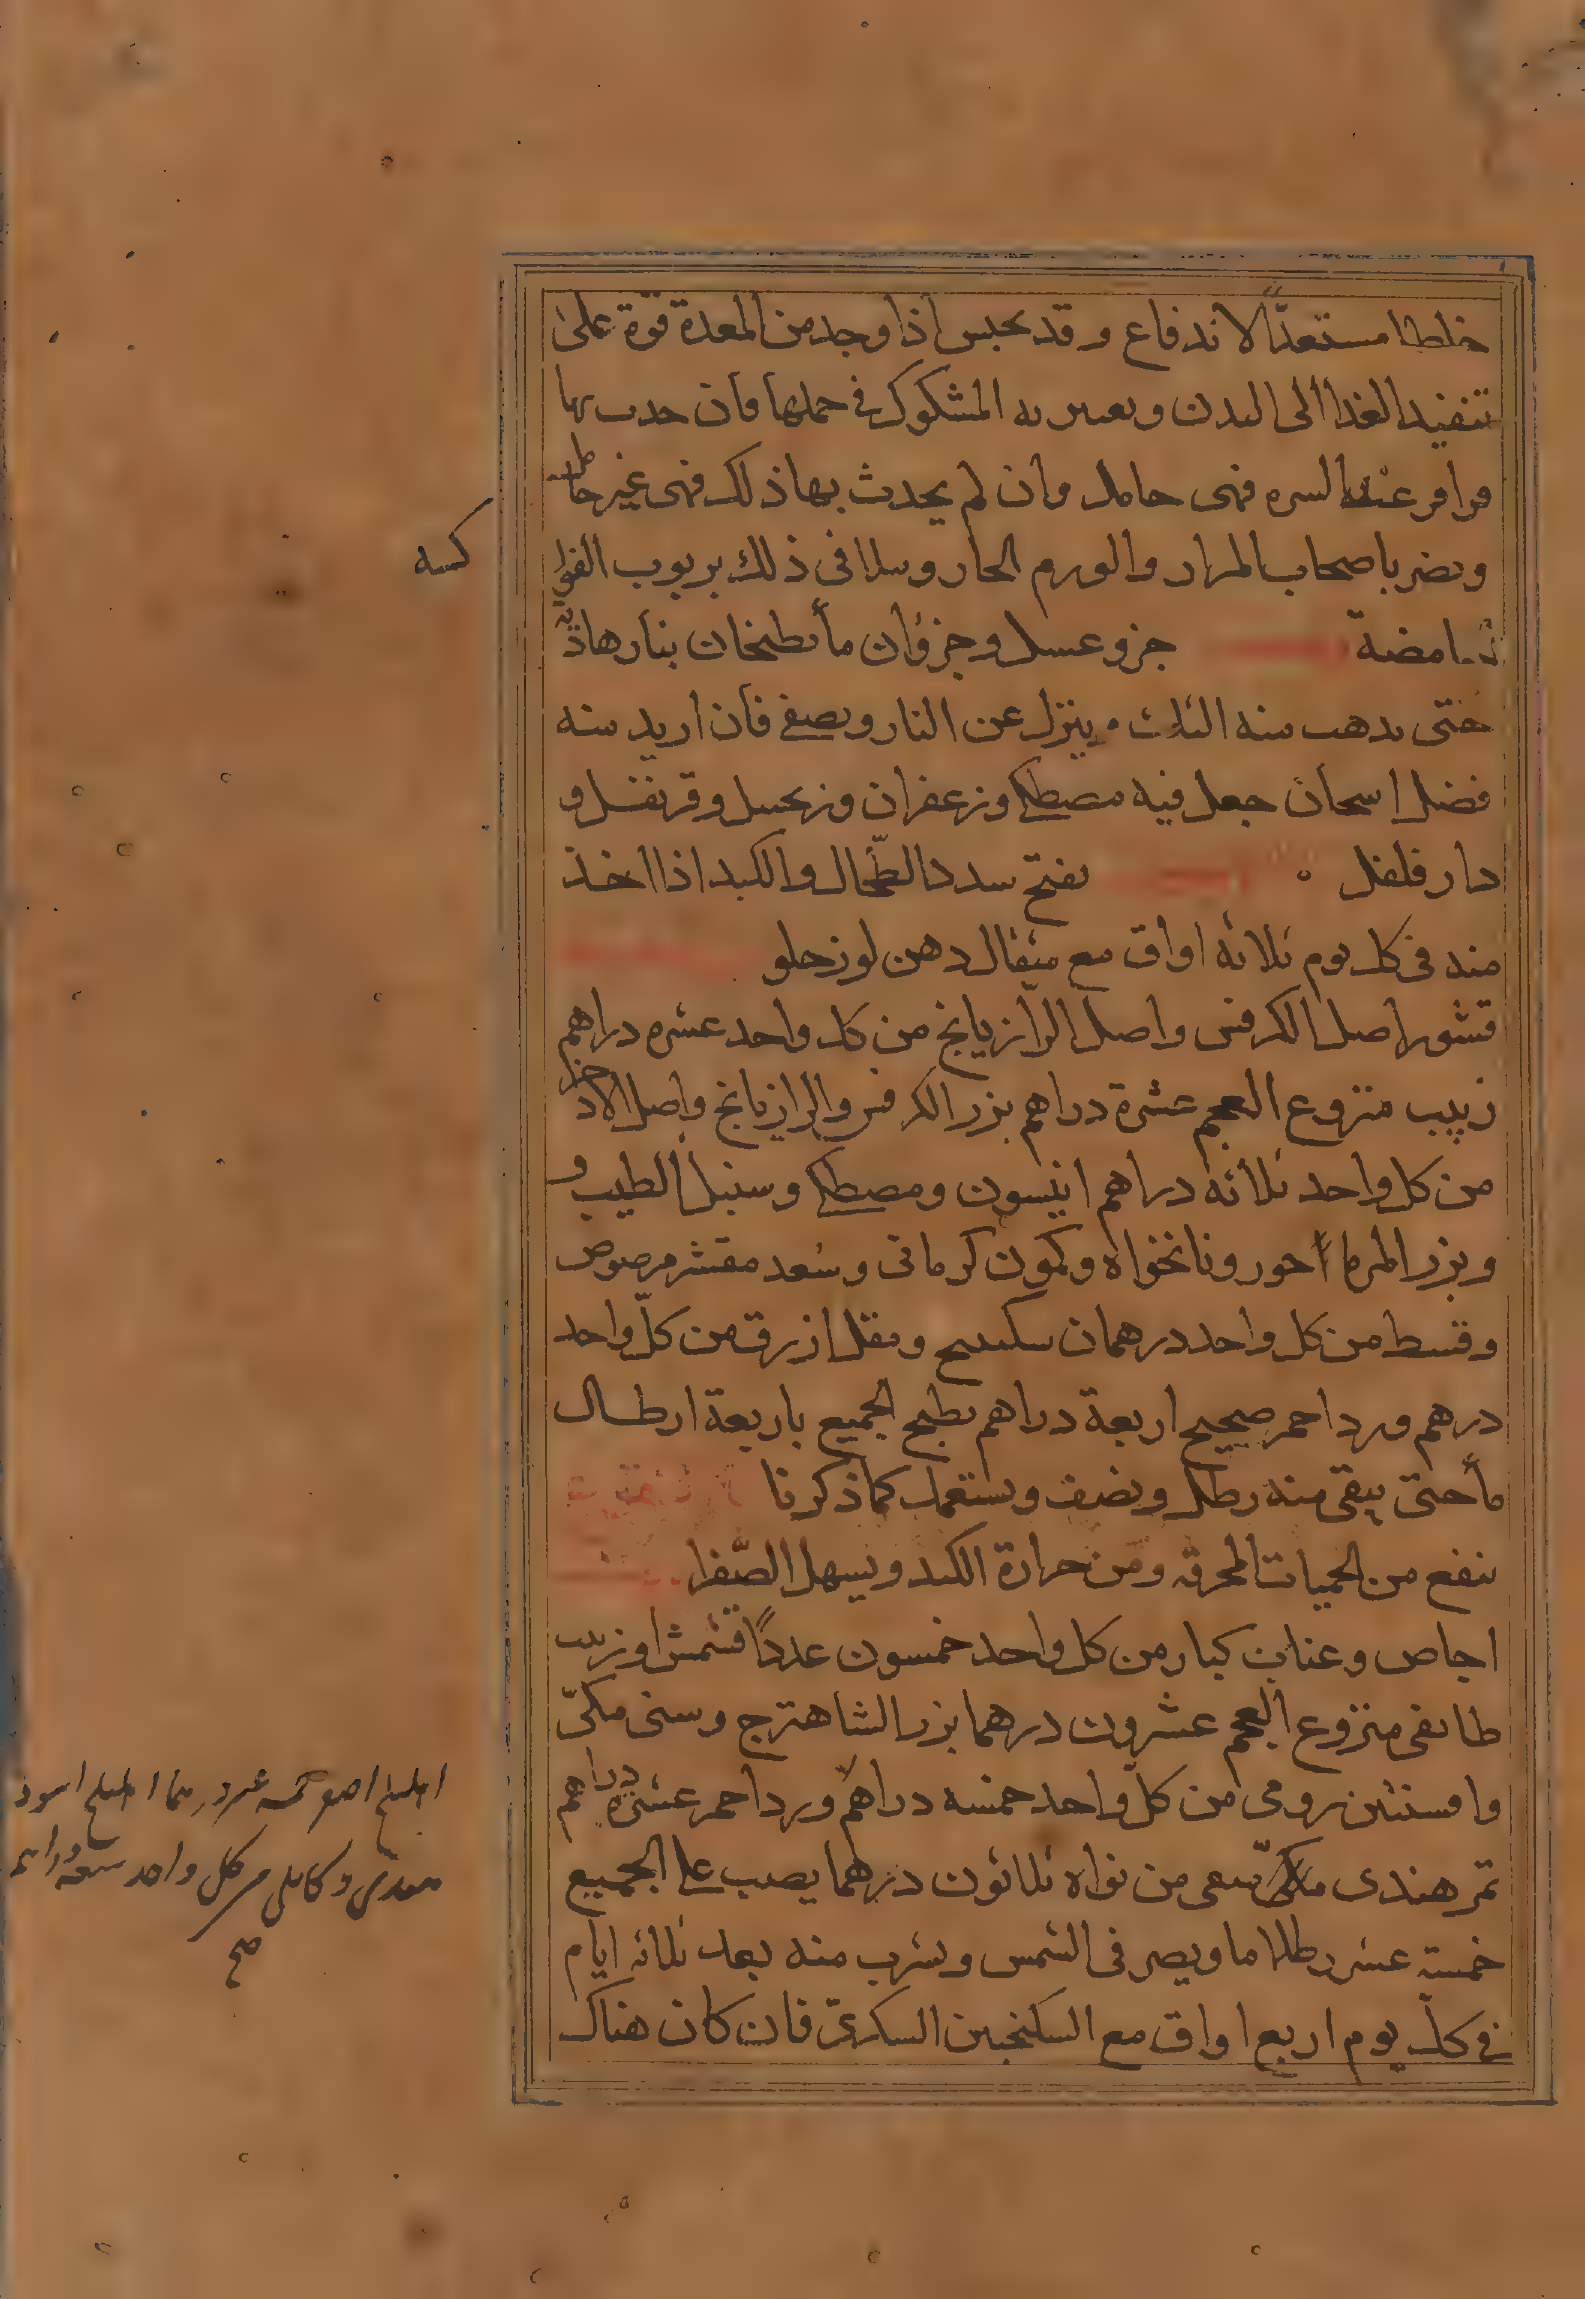 خلطا مستعدّا لاندفاع وقد يحبس اذا وجد من المعدة قوّة على
تنفيذ الغذا الى البدن ويعتبر به المشكوك في حملها فان حدث بها
قراقر عند السره فهى حامل وان لم يحدث بها ذلك فهى غير حامل
ويضر باصحاب المرار والورم الحار وتلافى ذلك بربوب الفواكه
الحامضة جزو عسل وجزوان مأ يطبخان بنار هادية
حتى يذهب منه الثلث وينزل عن النار ويصفى فان اريد منه
فضل اسخان جعل فيه مصطكى وزعفران وزنجبيل وقرنفل و
دار فلفل يفتح سدد الطّحال والكبد اذا اخذ
منه فى كل يوم ثلاثه اواق مع مثقال دهن لوز حلو
قشور اصل الكرفس واصل الرازيانج من كل واحد عشره دراهم
زبيب منزوع العجم عشرة دراهم بزر الكرفس والرازيانج واصل الاذخر
من كل واحد ثلاثه دراهم انيسون ومصطكى وسنبل الطيب و
وبزر المرماحور ونانخواه وكمون كرمانى وسعد مقشر مرضوض
وقسط من كل واحد درهمان سكبينج ومقل ازرق من كل واحد
درهم ورد احمر صحيح اربعة دراهم يطبخ الجميع باربعة ارطال
مأ حتى يبقى منه رطل ونصف ويستعمل كما ذكرنا
ينفع من الحميات المحرقه ومن حرارة الكبد ويسهل الصّفرا
اجاص وعناب كبار من كل واحد خمسون عددًا قشمش او زبيب
طايفى منزوع العجم عشرون درهما بزر الشاهترج وسنى مكىّ
وافسنتين رومى من كل واحد خمسه دراهم ورد احمر عشره دراهم
تمر هندى منقى من نواه ثلاثون درهما يصب على الجميع
خمسة عشر رطلا ما ويصير فى الشمس ويشرب منه بعد ثلاثه ايام
فى كل يوم اربع اواق مع السكنجبين السكرىّ فان كان هناك
اهليلج اصفر خمسه عشر درهما اهليلج اسود
هندى وكابلى من كل واحد سبعة دراهم
صح